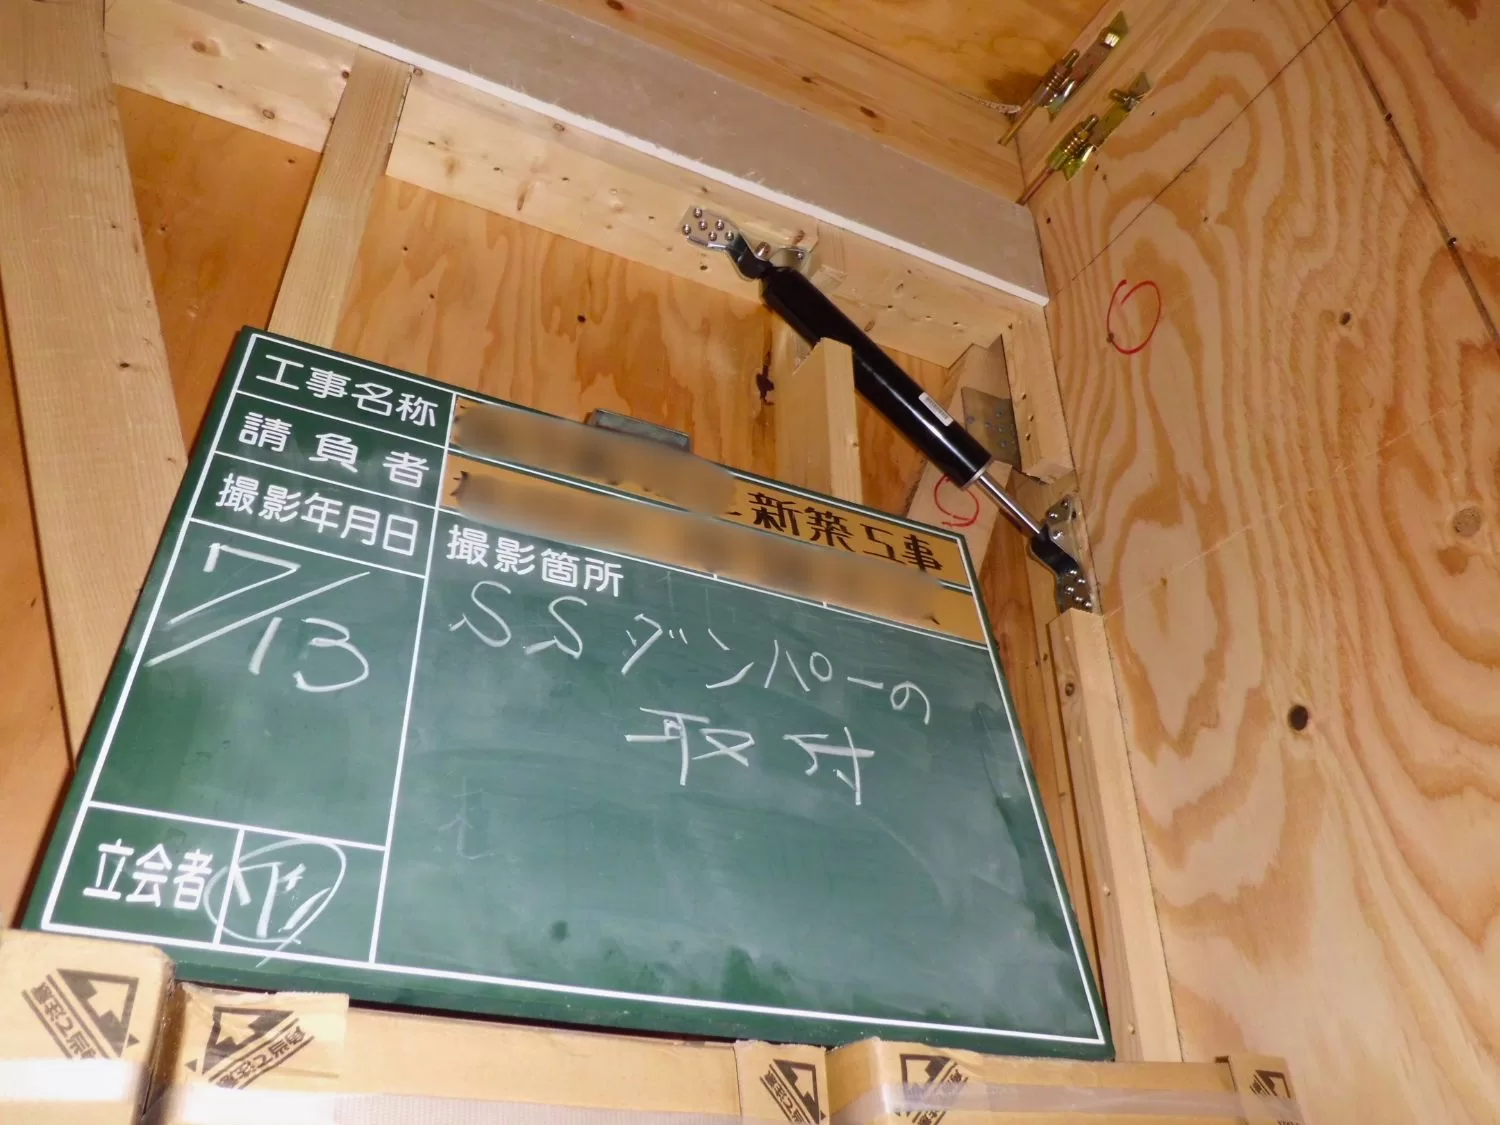 工事名称
新築工事
請負者
撮影年月日
撮影箇所
7/13
SSダンパーの
取付
立会者